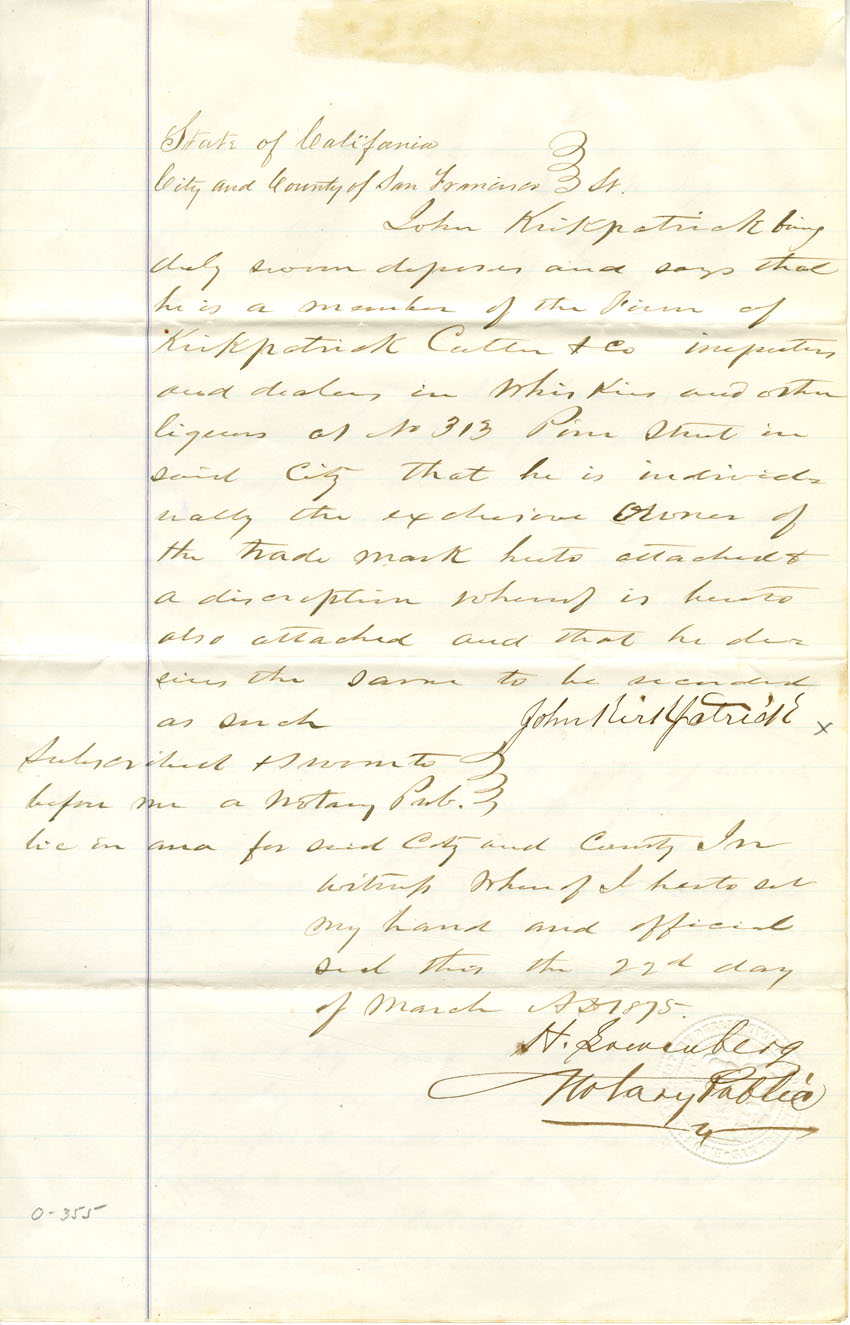 State of California
City and County of San Francisco } SS.
John Kirkpatrick being
duly sworn deposes and says that
he is a member of the Firm of
Kirkpatrick Cutter & Co importers
and dealers in Whiskies and other
liquors at No 313 Pine Street in
said City that he is individ=
ually the exclusive Owner of
the trade mark hereto attached &
a discription whereof is hereto
also attached and that he de=
sires the same to be recorded
as such John Kirkpatrick x
Subscribed & Sworn to }
before me a Notary Pub. }
lic in and for said City and County In
witness Whereof I hereto set
my hand and official
seal this the 22d day
of March AD 1875.
H. Lowenberg
Notary Public
0-355